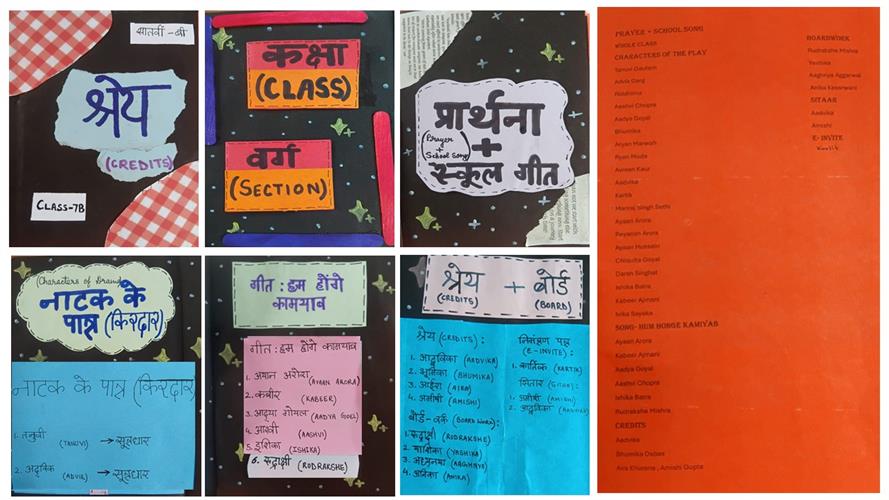 सातवीं - बी
श्रेय
(CREDITS)
CLASS-7B
कक्षा
(CLASS)
वर्ग
(SECTION)
प्रार्थना
(Prayer
+
School Song)
+
स्कूल गीत
(Characters of Drama)
नाटक के
पात्र (किरदार)
नाटक के पात्र (किरदार)
1. तनुवी
(TANUVI) → सूत्रधार
2.
(ADVIK) → सूत्रधार
गीत : हम होंगे
कामयाब
गीत : हम होंगे कामयाब
1. अयान अरोरा (AYAAN ARORA)
2. कबीर (KABEER)
3. आद्या गोयल (AADYA GOEL)
4. आश्वी (AASHVI)
5. इशिका (ISHIKA)
6. रूद्राक्षी (RODRAKSHE)
श्रेय + बोर्ड
(CREDITS) (BOARD)
श्रेय (CREDITS) :
1. आद्विका (AADVIKA)
2. भूमिका (BHUMIKA)
3. आईरा (AIRA)
4. अमीषी (AMISHI)
बोर्ड-वर्क (BOARD WORK) :
1. रूद्राक्षी (RODRAKSHE)
2. याशिका (YASHIKA)
3. (AAGHNYA)
4. अनिका (ANIKA)
निमंत्रण पत्र
(E-INVITE) :
1. कार्तिक (KARTIK)
सितार (SITAR) :
1. अमीषी (AMISHI)
2. आद्विका (AADVIKA)
PRAYER + SCHOOL SONG
WHOLE CLASS
CHARACTERS OF THE PLAY
Tanuvi Gautam
Advik Garg
Riddhima
Aashvi Chopra
Aadya Goyal
Bhumika
Aryan Marwah
Ryan Muda
Avreen Kaur
Aadvika
Kartik
Manraj Singh Sethi
Ayaan Arora
Reyansh Arora
Ayaan Hussain
Chisulta Goyal
Darsh Singhal
Ishika Batra
Kabeer Ajmani
Ivika Sayska
SONG- HUM HONGE KAMIYAB
Ayaan Arora
Kabeer Ajmani
Aadya Goyal
Aashvi Chopra
Ishika Batra
Rudraksha Mishra
CREDITS
Aadvika
Bhumika Dabas
Aira Khurana , Amishi Gupta
BOARDWORK
Rudraksha Mishra
Yashika
Aaghnya Aggarwal
Anika Kesarwani
SITAAR
Aadvika
Amishi
E- INVITE
Kartik